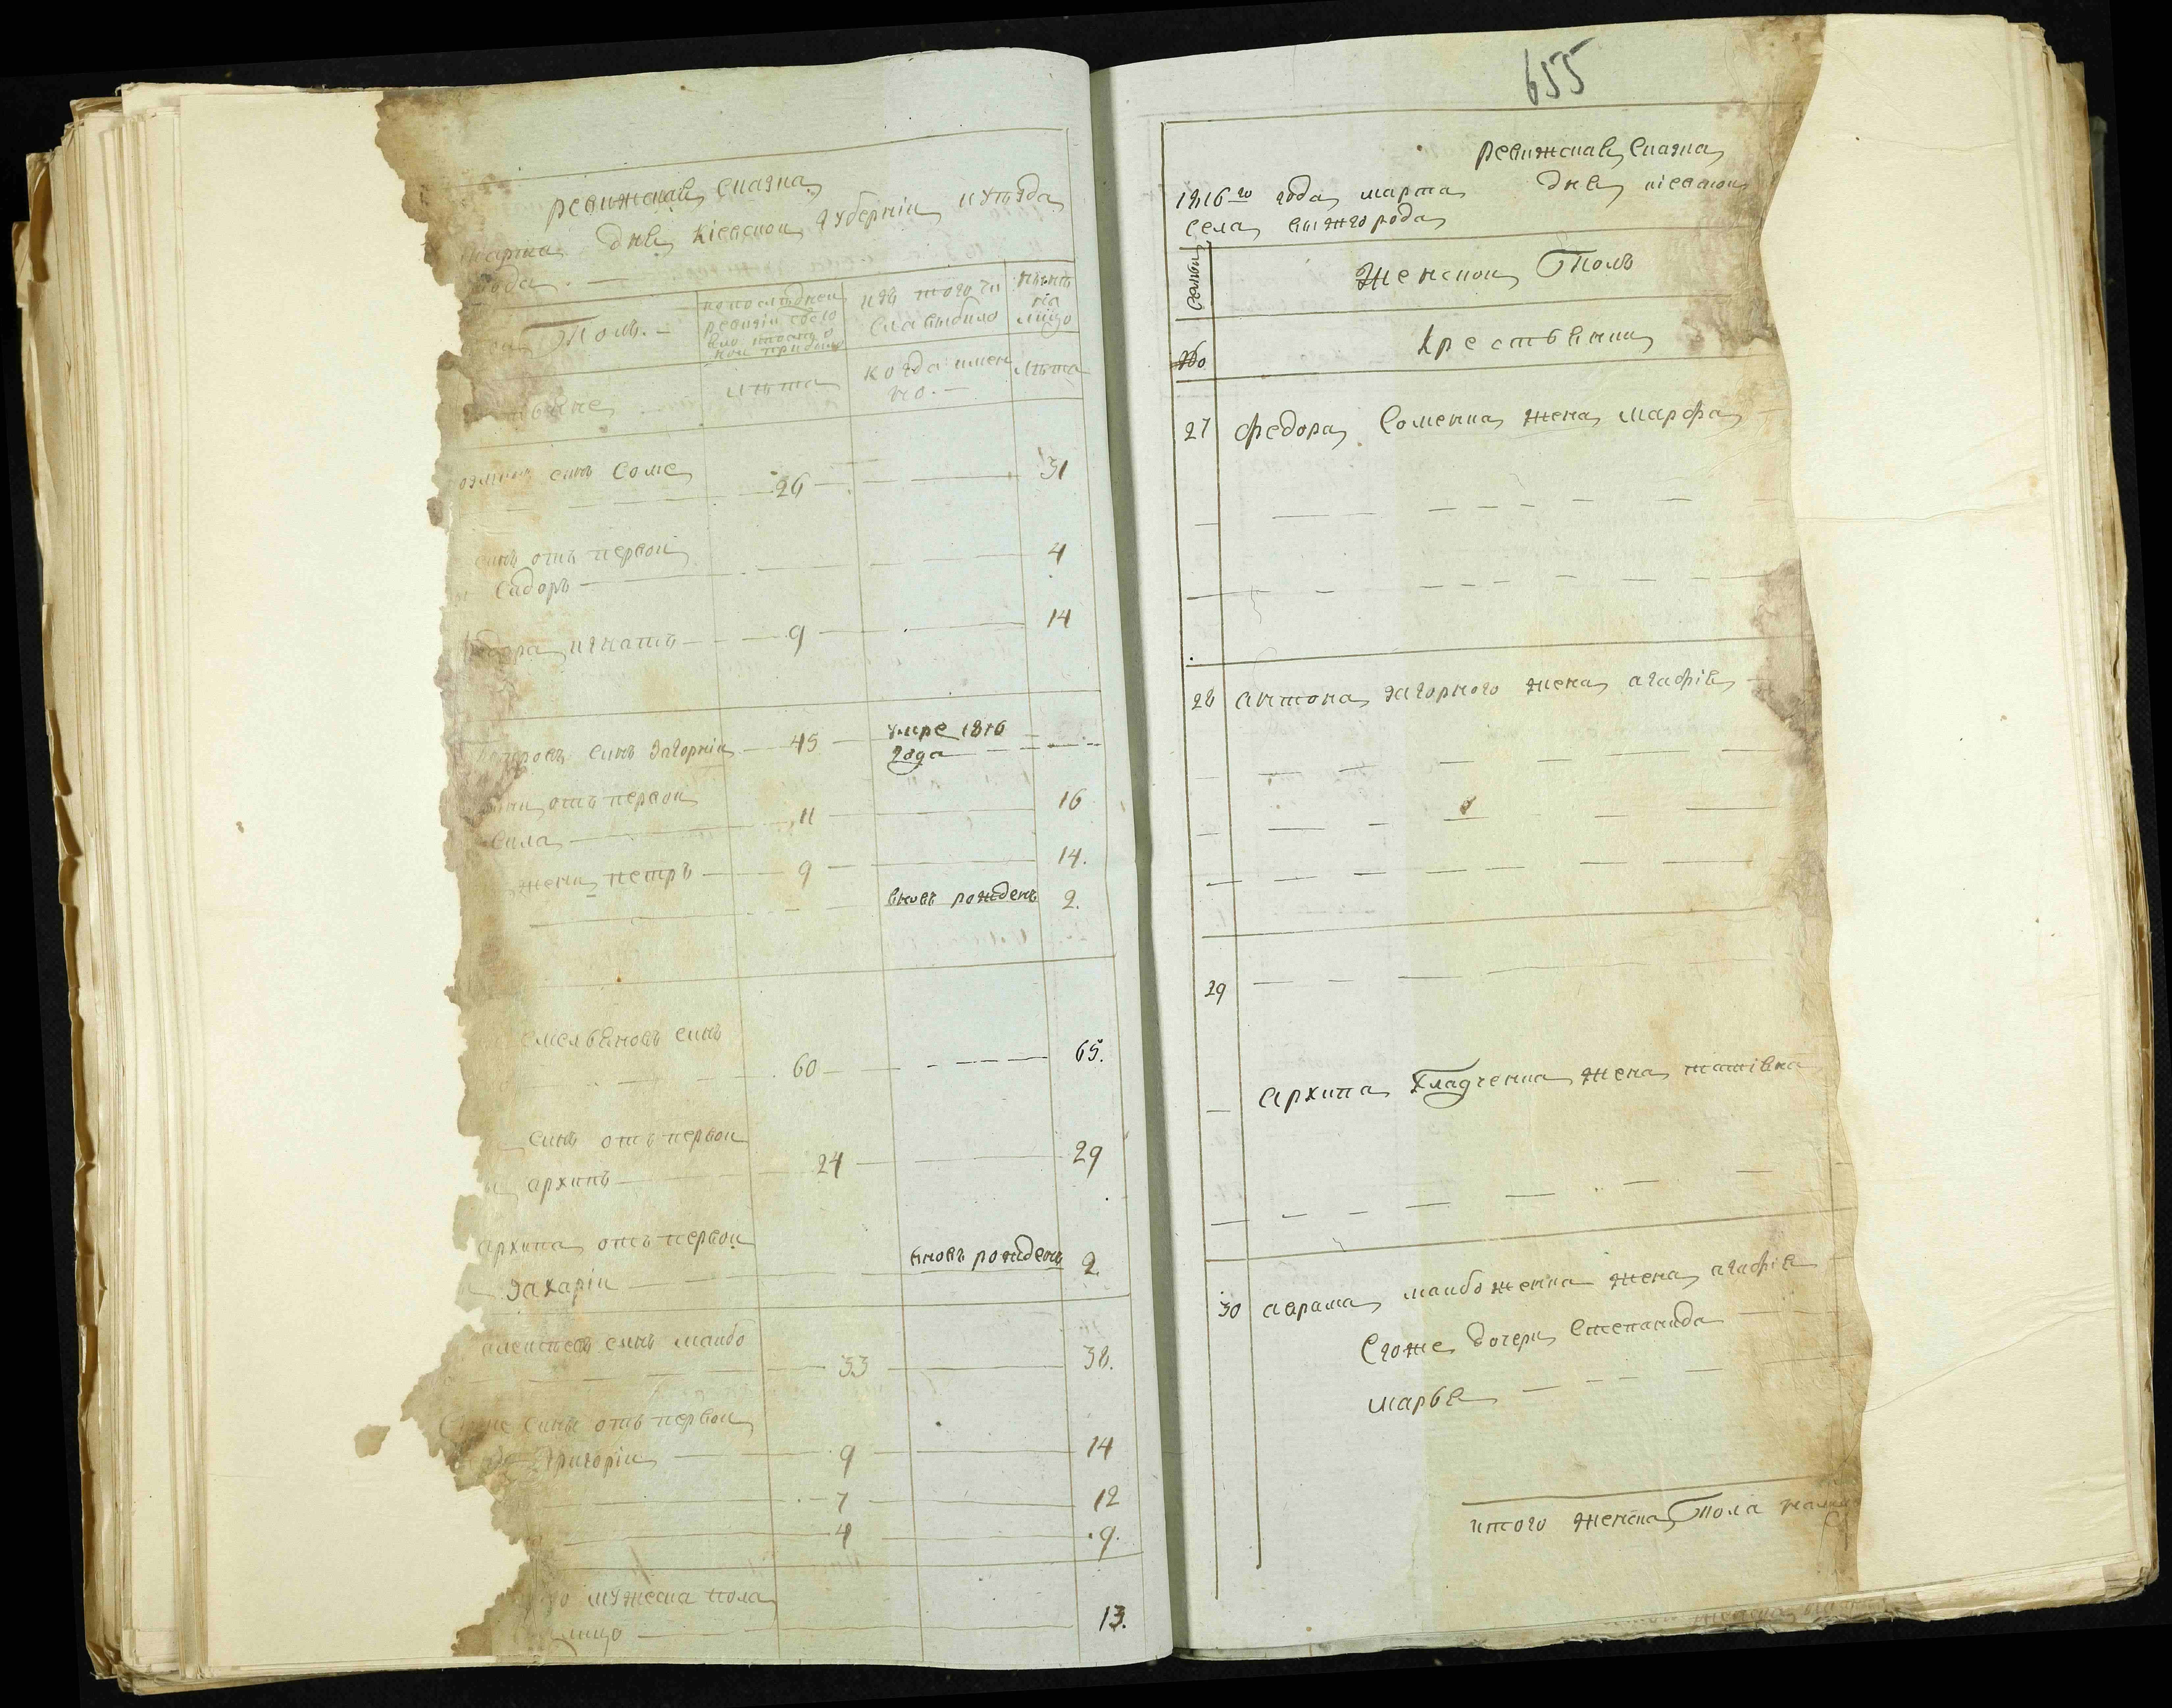 ревижская сказка
марта дня кіевской губерніи и уезда
рода. —
Полъ. —
по последней
ревизіи состо
яло и после о
ной прибыло
изъ того чи
сла выбыло
ныне
на
лицо
лета
когда имен
но. —
лета
сынъ Соме
26
31
сынъ отъ первой
Сидоръ
4
игнатъ
9
14
сынъ Загорній
45
умре 1816
года
отъ первой
Сила
11
16
жены петръ
9
14.
вновь рожденъ
2.
емельяновъ сынъ
60
65.
сынъ отъ первой
архипъ
24
29
архипа отъ первой
Захарій
вновь рожденъ
2.
алексеевъ сынъ маибо
33
38.
сыны отъ первой
Григорій
9
14
7
12
4
9.
мужеска пола
лицо
13.
655
ревижская Сказка
1816го года марта дня кіевской
села вижгорода
семьи
Женской Полъ
№
Крестьянки
27 федора Соменка жена марфа
28 антона загорного жена агафія
29
архипа Гладченка жена татіяна
30 аврама маибоженка жена агафія
Егоже дочери Степанида
марья
итого женска пола